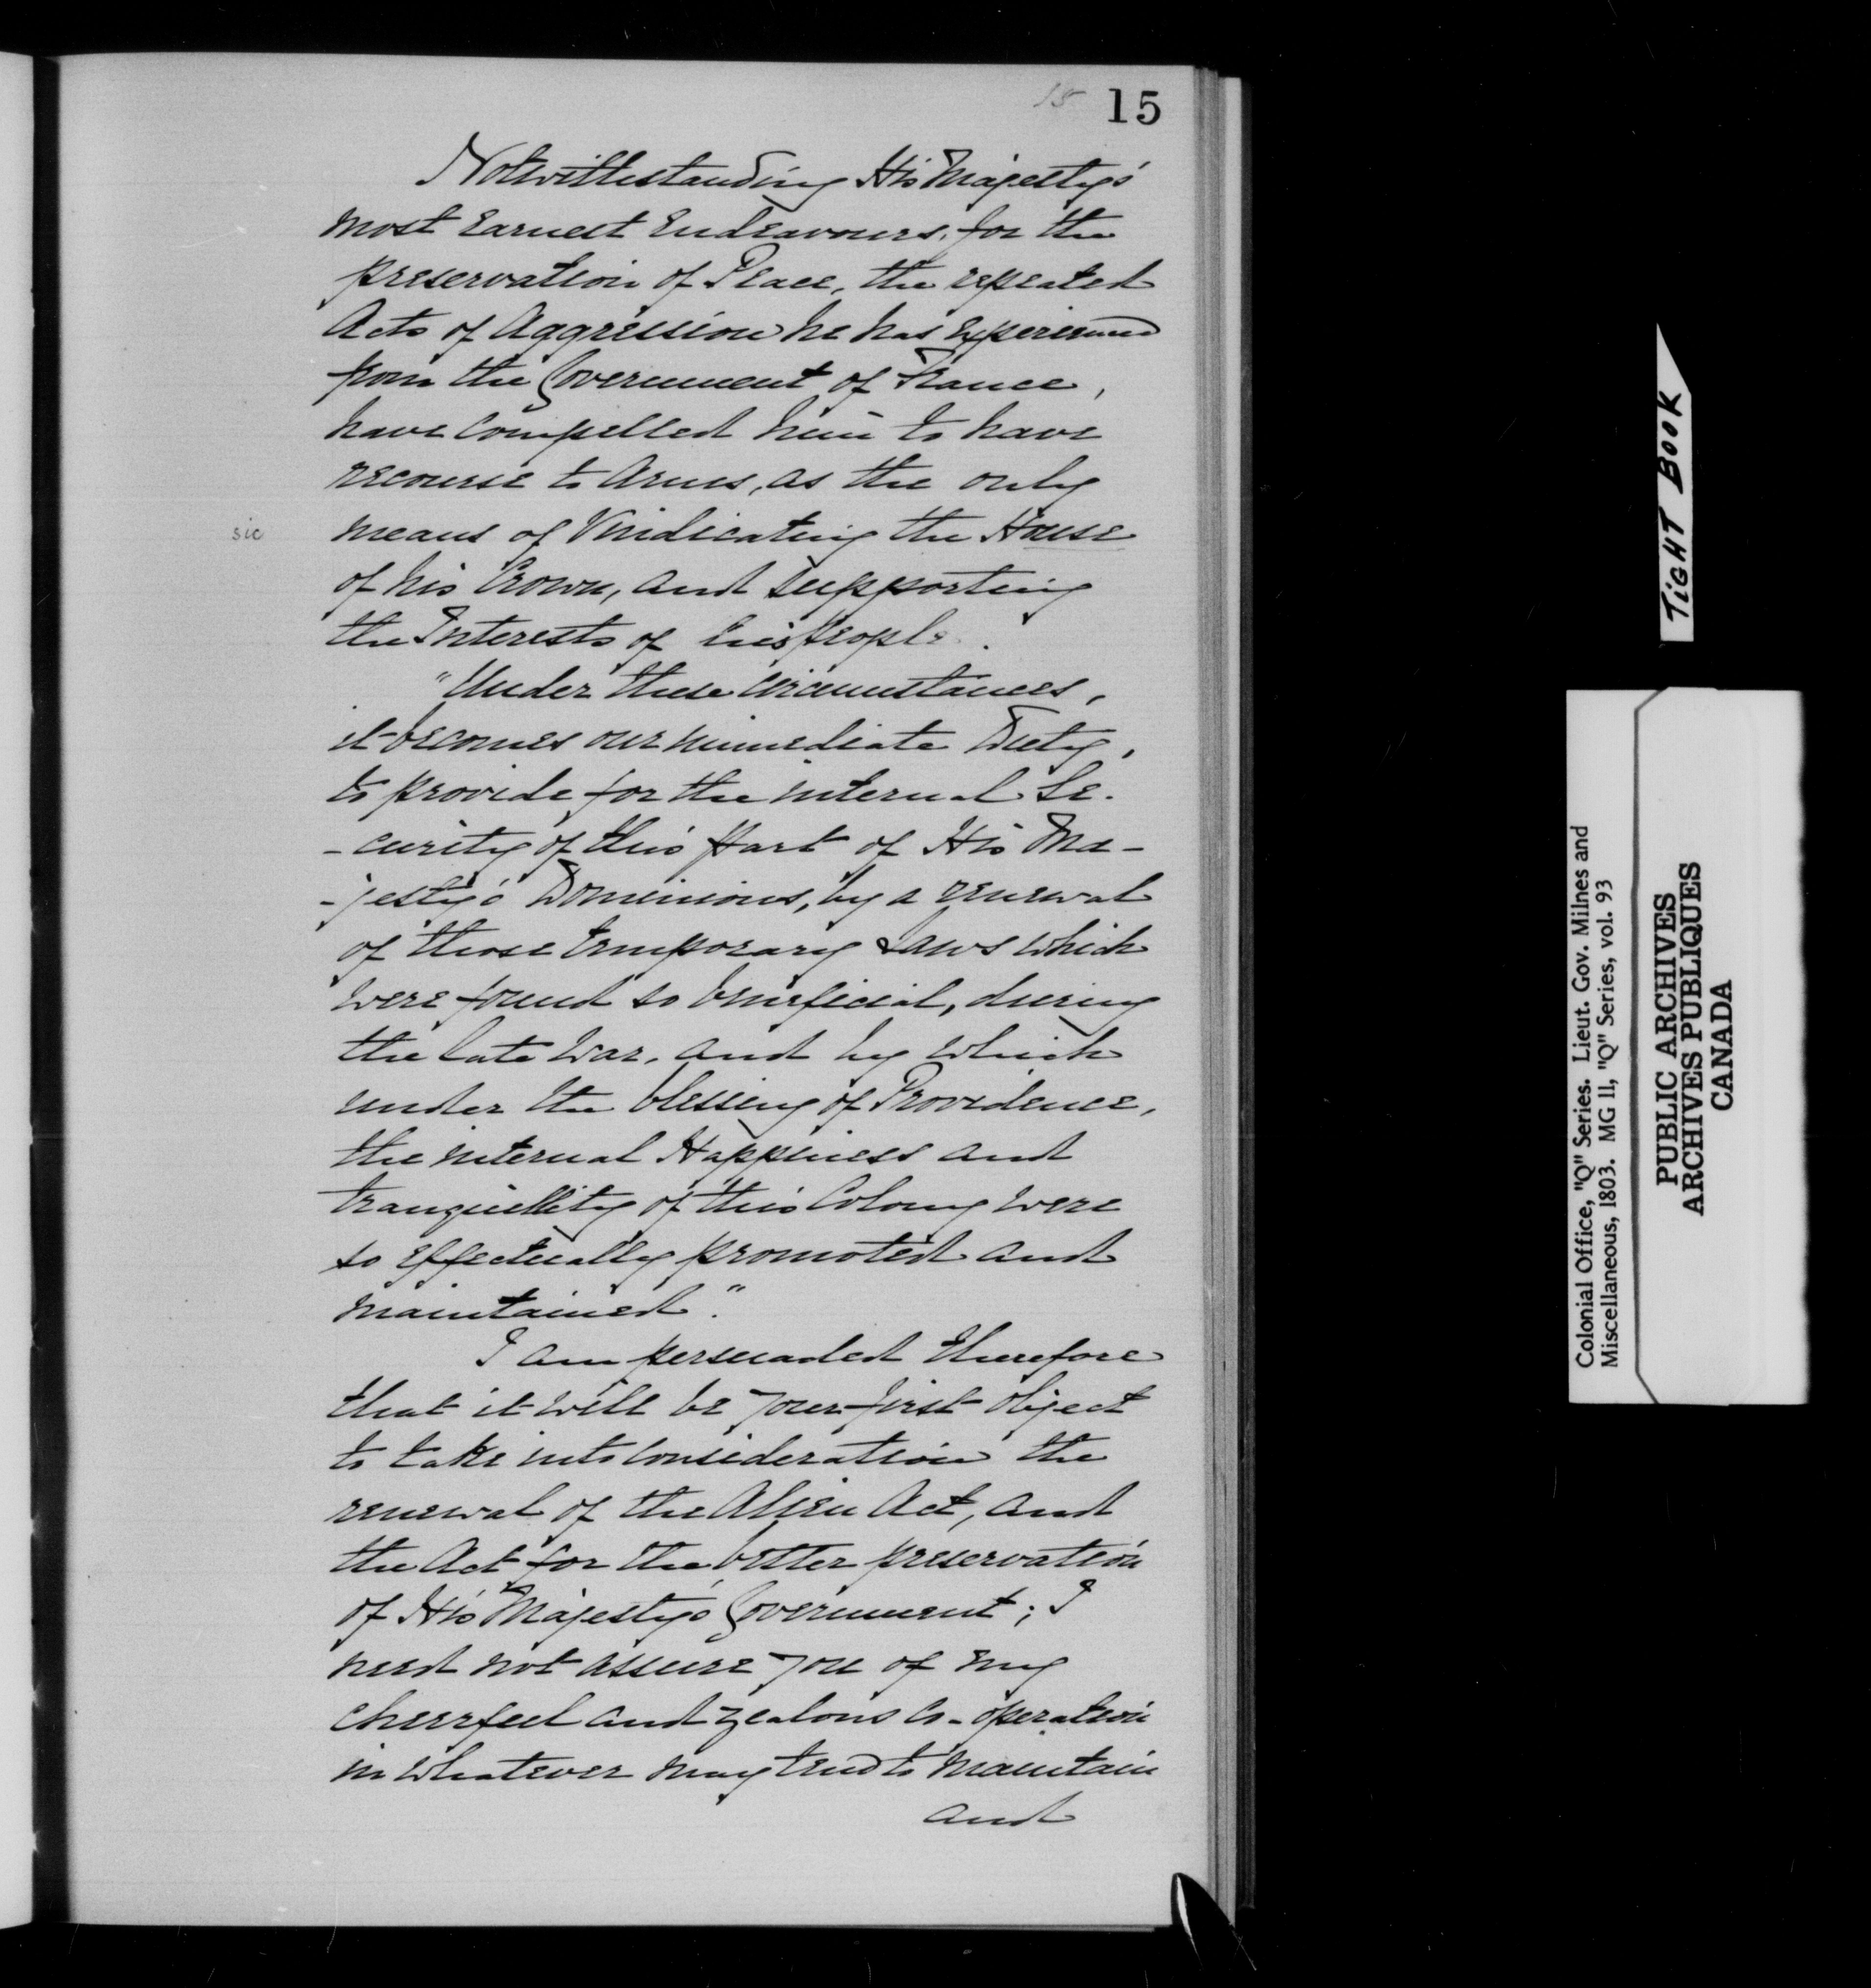 15 15
Notwithstanding His Majesty's
most Earnest Endeavours, for the
preservation of Peace, the repeated
Acts of Aggression he has Experienced
from the Government of France,
have compelled him to have
recourse to Arms, as the only
sic means of Vindicating the House
of his Crown, and supporting
the Interests of his people.
"Under these circumstances,
it becomes our immediate Duty,
to provide for the internal Se-
-curity of this part of His Ma-
-jesty's Dominions, by a renewal
of those temporary Laws which
were found so beneficial, during
the late War, and by which
under the blessing of Providence,
the internal Happiness and
tranquillity of this Colony were
so effectually promoted and
maintained."
I am persuaded therefore
that it will be your first object
to take into consideration the
renewal of the Alien Act, and
the Act for the better preservation
of His Majesty's Government; I
need not assure you of my
cheerful and zealous co-operation
in whatever may tend to maintain
and
TIGHT BOOK
Colonial Office, "Q" Series. Lieut. Gov. Milnes and
Miscellaneous, 1803. MG 11, "Q" Series, vol. 93
PUBLIC ARCHIVES
ARCHIVES PUBLIQUES
CANADA